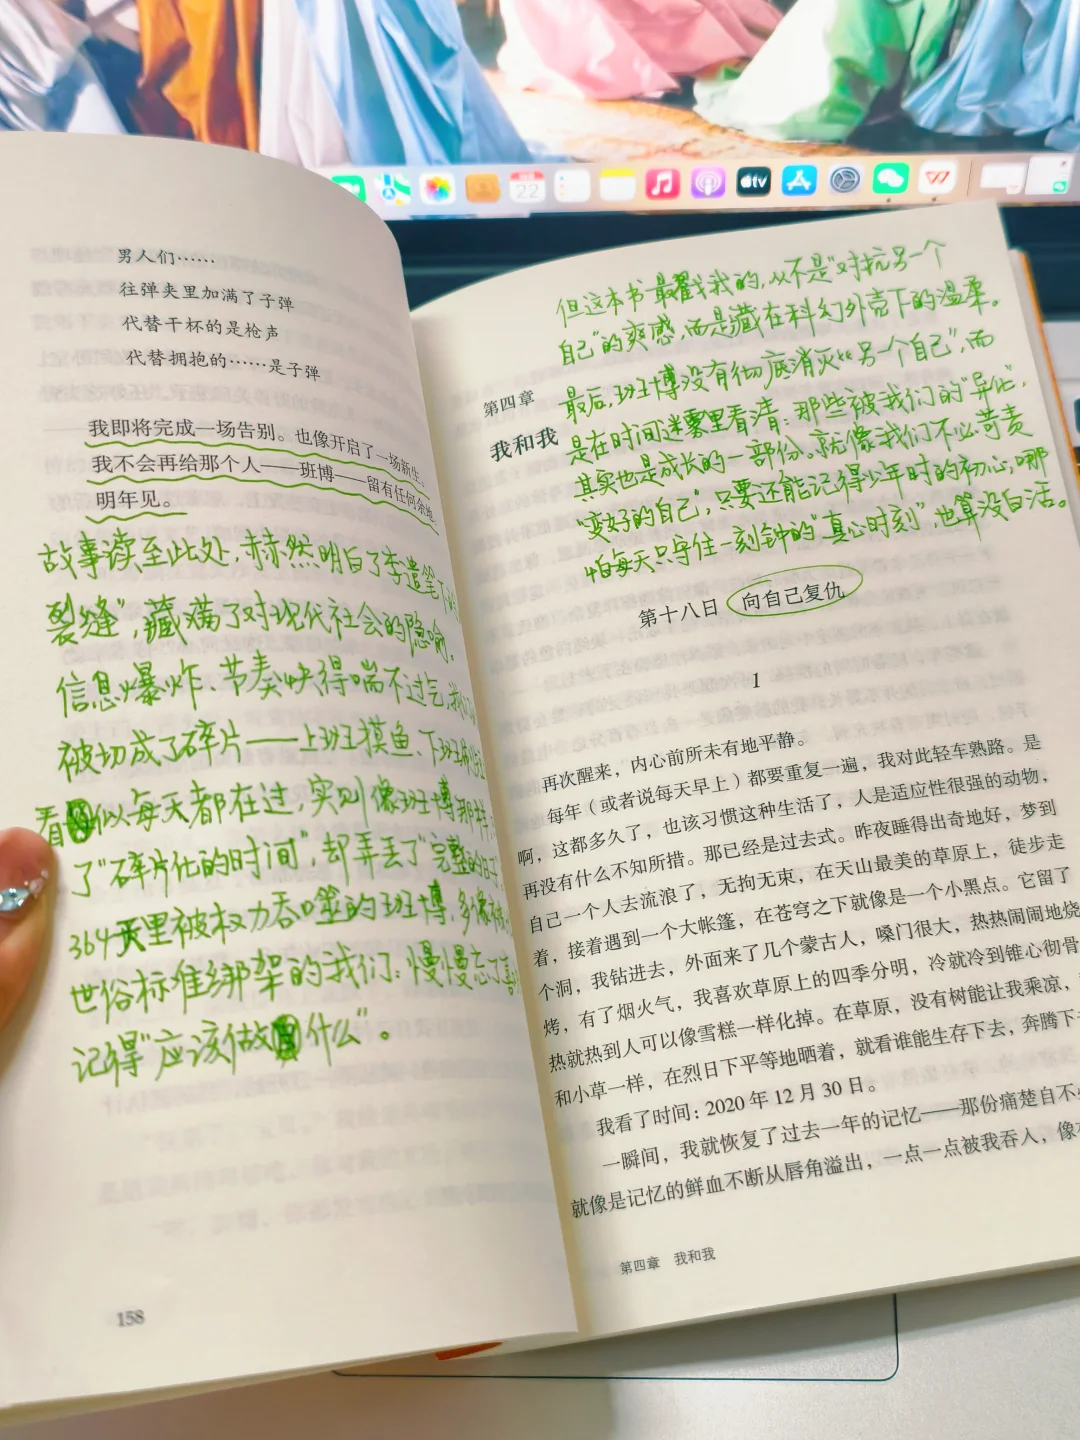 22
tv
男人们……
往弹夹里加满了子弹
代替干杯的是枪声
代替拥抱的……是子弹
我即将完成一场告别。也像开启了一场新生。
我不会再给那个人——班博——留有任何余地。
明年见。
故事读至此处，赫然明白了李遣笔下的
裂缝”，藏满了对现代社会的隐喻。
信息爆炸、节奏快得喘不过气，
被切成了碎片——上班摸鱼、下班
看似每天都在过，实则像班博那样
了“碎片化的时间”，却弄丢了“完整的日子”
364天里被权力吞噬的班博，多像被
世俗标准绑架的我们：慢慢忘了喜
记得“应该做什么”。
158
但这本书最戳我的，从不是“对抗另一个
自己”的爽感，而是藏在科幻外壳下的温柔。
最后，班博没有彻底消灭“另一个自己”，而
是在时间迷雾里看清：那些被我们的“异化”，
其实也是成长的一部份。就像我们不必苛责
“变好的自己”，只要还能记得少年时的初心，哪
怕每天只守住一刻钟的“真心时刻”，也算没白活。
第四章
我和我
第十八日 向自己复仇
1
再次醒来，内心前所未有地平静。
每年（或者说每天早上）都要重复一遍，我对此轻车熟路。是
啊，这都多久了，也该习惯这种生活了，人是适应性很强的动物，
再没有什么不知所措。那已经是过去式。昨夜睡得出奇地好，梦到
自己一个人去流浪了，无拘无束，在天山最美的草原上，徒步走
着，接着遇到一个大帐篷，在苍穹之下就像是一个小黑点。它留了
个洞，我钻进去，外面来了几个蒙古人，嗓门很大，热热闹闹地烧
烤，有了烟火气，我喜欢草原上的四季分明，冷就冷到锥心彻骨
热就热到人可以像雪糕一样化掉。在草原，没有树能让我乘凉，
和小草一样，在烈日下平等地晒着，就看谁能生存下去，奔腾下
我看了时间：2020 年 12 月 30 日。
一瞬间，我就恢复了过去一年的记忆——那份痛楚自不
就像是记忆的鲜血不断从唇角溢出，一点一点被我吞入，像
第四章 我和我